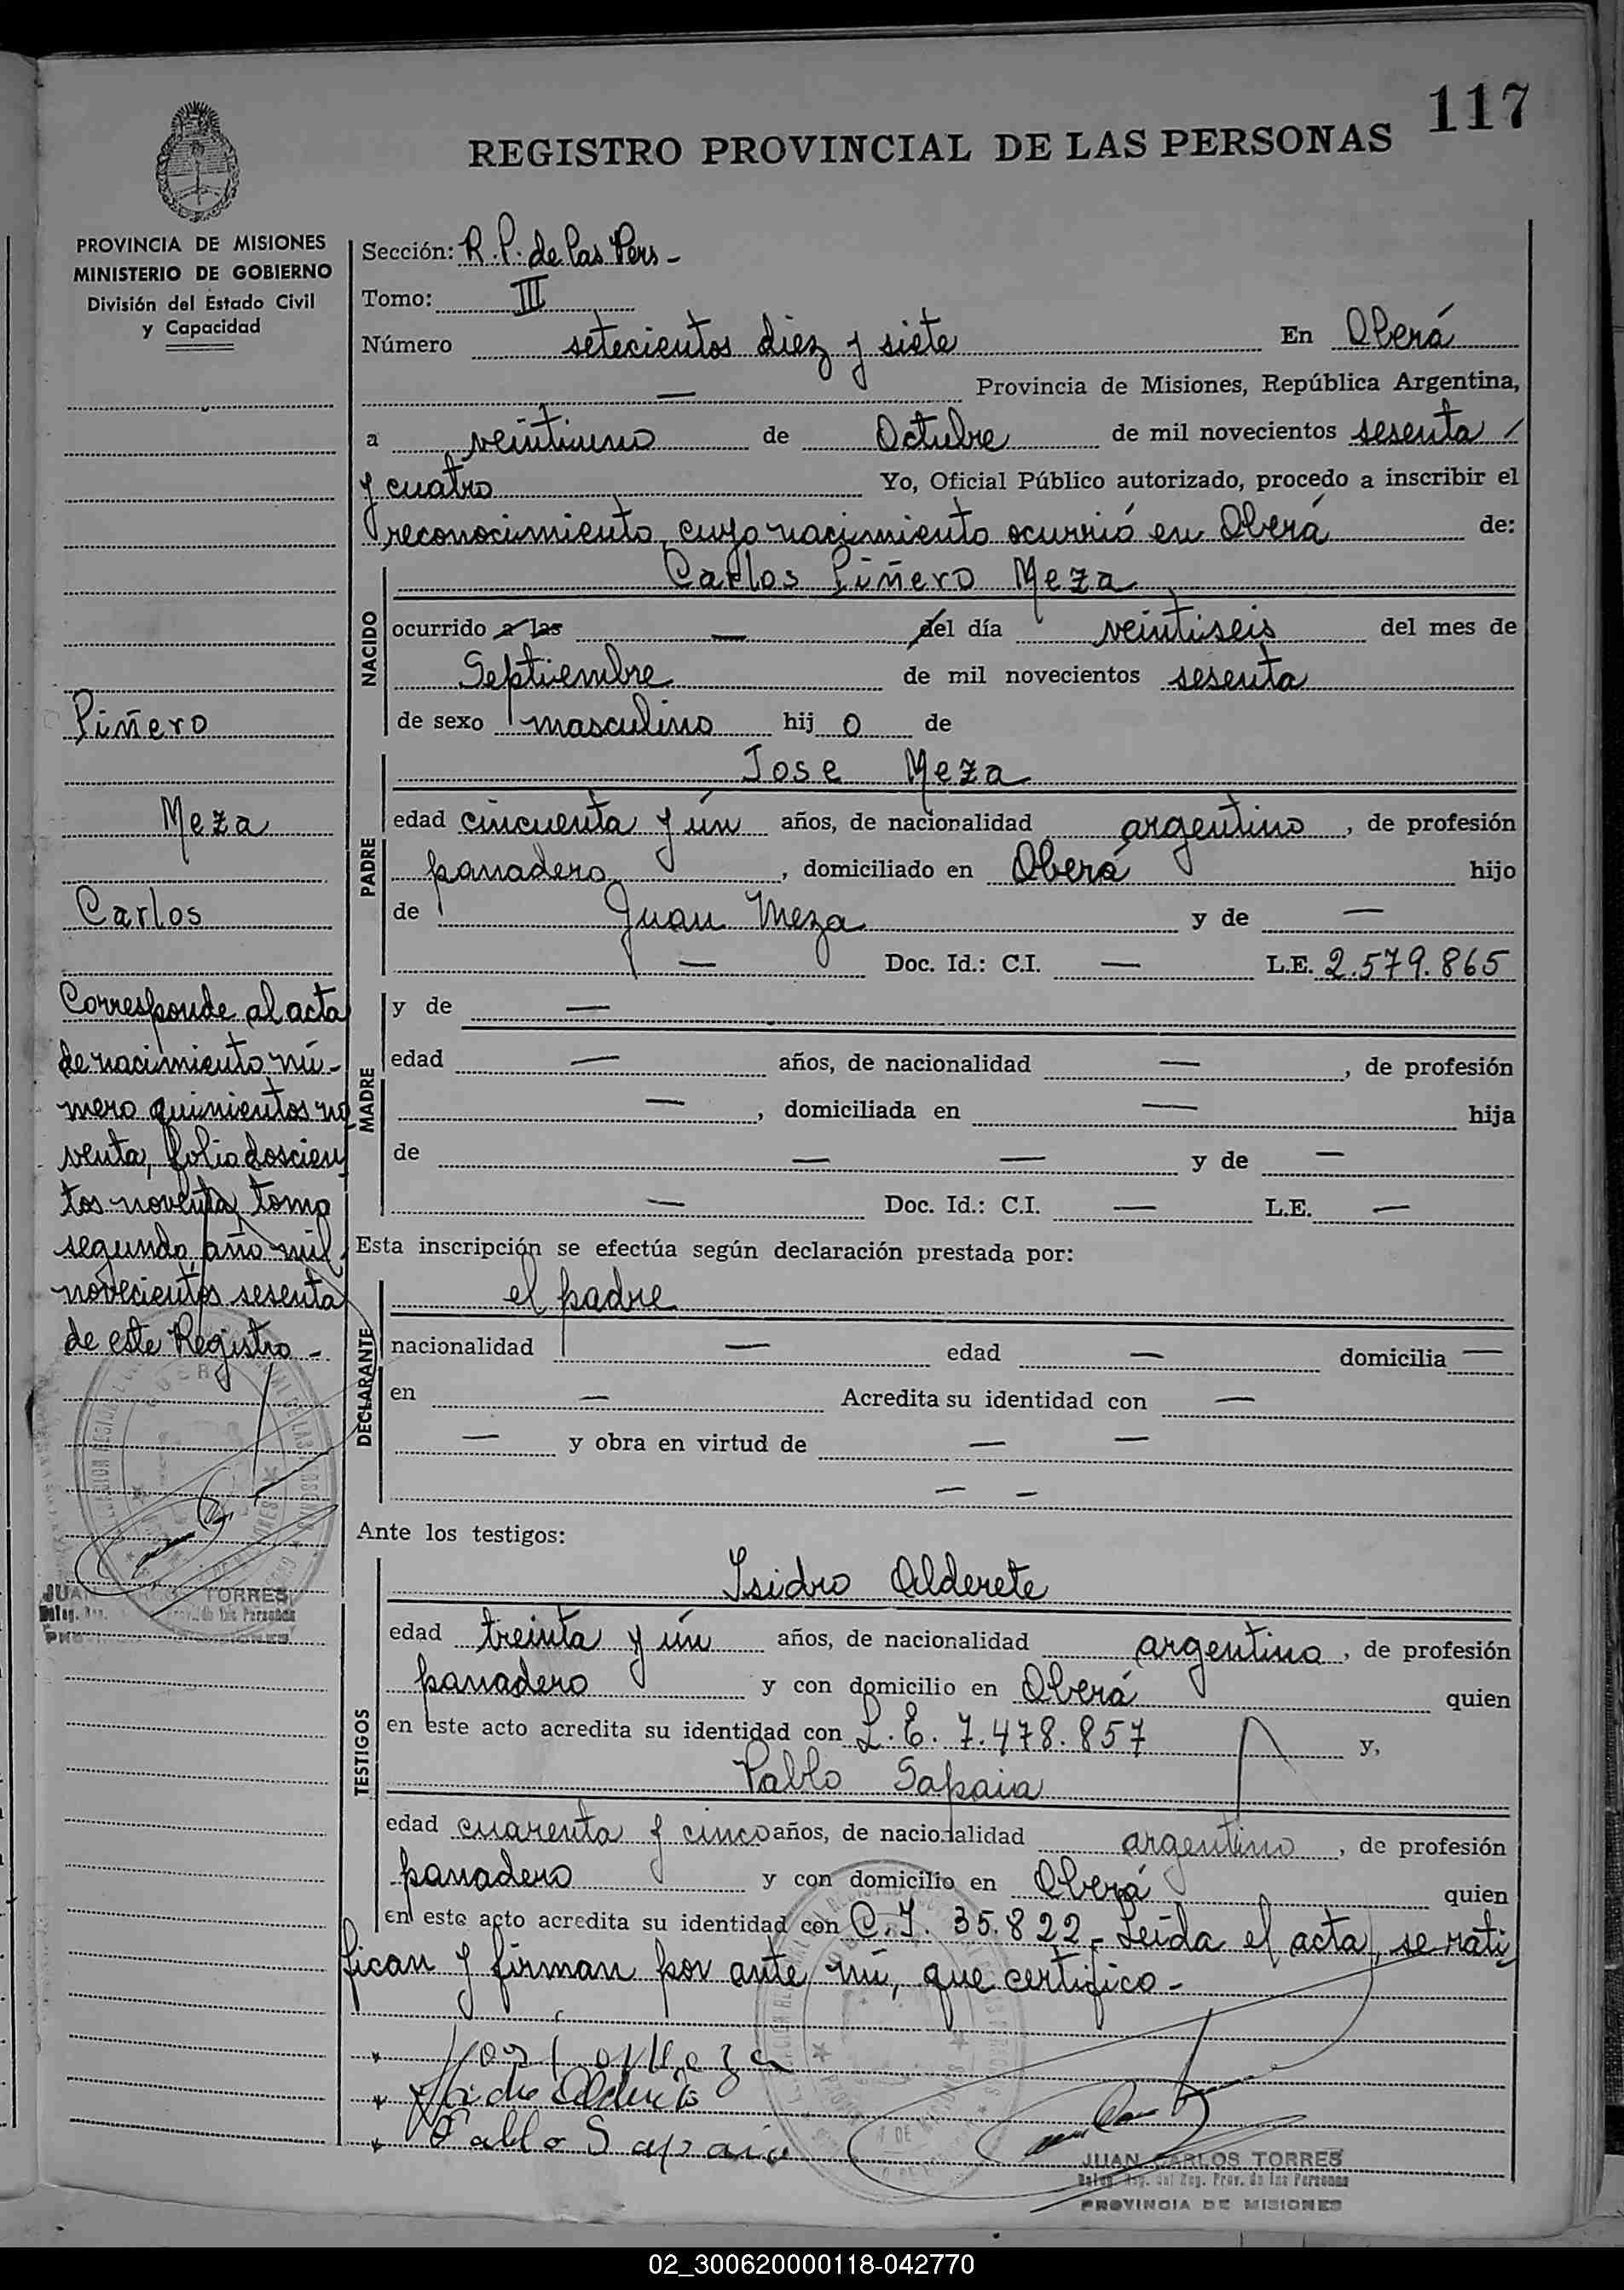 117
REGISTRO PROVINCIAL DE LAS PERSONAS
PROVINCIA DE MISIONES
MINISTERIO DE GOBIERNO
División del Estado Civil
y Capacidad
Piñero
Meza
Carlos
Corresponde al acta
de nacimiento nú-
mero quinientos no
venta, folio doscien
tos noventa, tomo
segundo, año mil
novecientos sesenta
de este Registro -
JUAN TORRES
Sección: R.P. de las Pers -
Tomo: III
Número setecientos diez y siete En Oberá
— Provincia de Misiones, República Argentina,
a veintiuno de Octubre de mil novecientos sesenta /
y cuatro Yo, Oficial Público autorizado, procedo a inscribir el
reconocimiento, cuyo nacimiento ocurrió en Oberá de:
NACIDO
Carlos Piñero Meza
ocurrido a las — del día veintiseis del mes de
Septiembre de mil novecientos sesenta
de sexo masculino hij o de
PADRE
Jose Meza
edad cincuenta y ún años, de nacionalidad argentino, de profesión
panadero, domiciliado en Oberá hijo
de Juan Meza y de —
— Doc. Id.: C.I. — L.E. 2.579.865
MADRE
y de —
edad — años, de nacionalidad —, de profesión
—, domiciliada en — hija
de — — y de —
— Doc. Id.: C.I. — L.E. —
Esta inscripción se efectúa según declaración prestada por:
DECLARANTE
el padre
nacionalidad — edad — domicilia —
en — Acredita su identidad con —
— y obra en virtud de — —
— —
Ante los testigos:
TESTIGOS
Isidro Alderete
edad treinta y ún años, de nacionalidad argentino, de profesión
panadero y con domicilio en Oberá quien
en este acto acredita su identidad con L.E. 7.478.857 y,
Pablo Sapaia
edad cuarenta y cinco años, de nacionalidad argentino, de profesión
panadero y con domicilio en Oberá quien
en este acto acredita su identidad con C.I. 35.822 - Leída el acta, se rati
fican y firman por ante mí, que certifico -
Isidro Alderete
Pablo Sapaia
JUAN CARLOS TORRES
Deleg. Reg. del Reg. Prov. de las Personas
PROVINCIA DE MISIONES
02_300620000118-042770